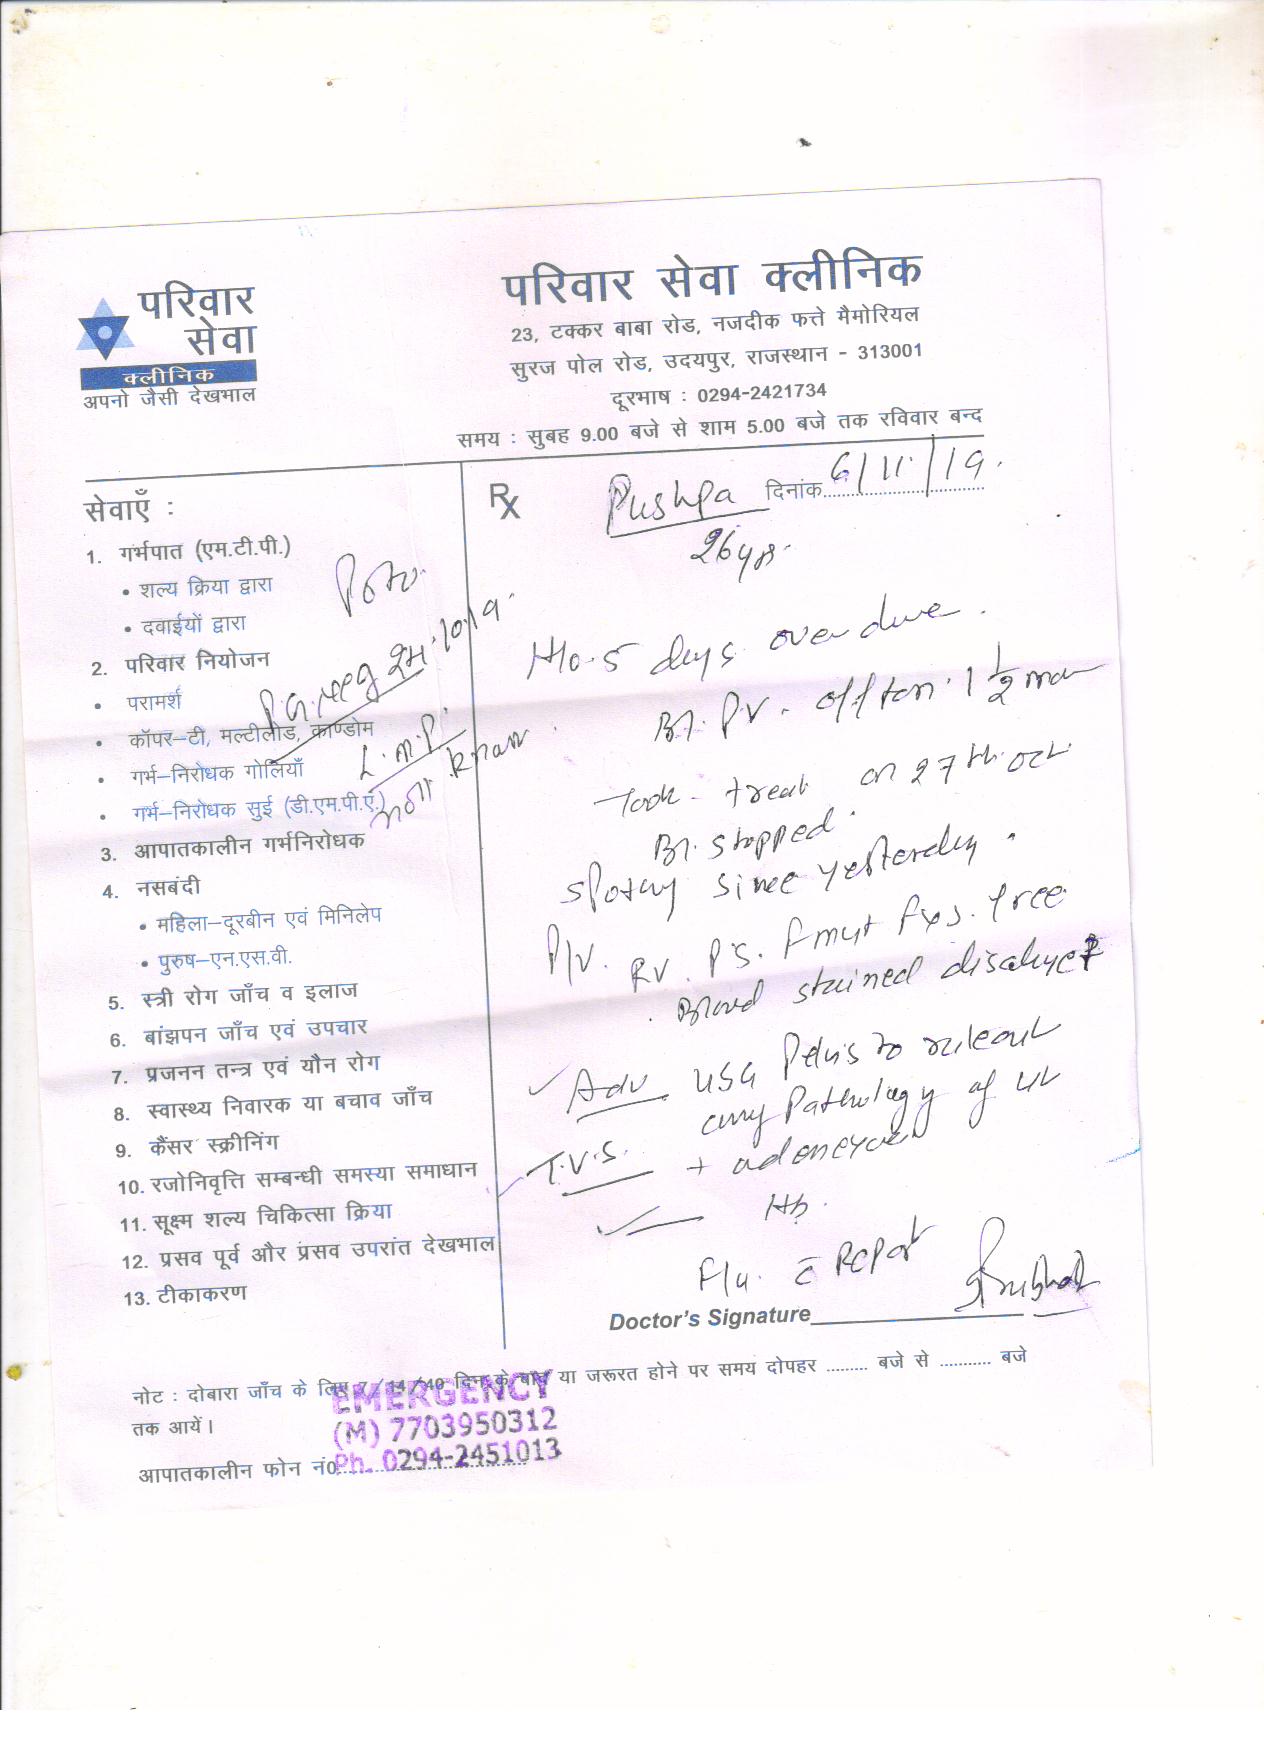 परिवार
सेवा
क्लीनिक
अपनो जैसी देखभाल
परिवार सेवा क्लीनिक
23, टक्कर बाबा रोड, नजदीक फत्ते मैमोरियल
सुरज पोल रोड, उदयपुर, राजस्थान - 313001
दूरभाष : 0294-2421734
समय : सुबह 9.00 बजे से शाम 5.00 बजे तक रविवार बन्द
सेवाएँ :
1. गर्भपात (एम.टी.पी.)
• शल्य क्रिया द्वारा
• दवाईयों द्वारा
2. परिवार नियोजन
• परामर्श
• कॉपर-टी, मल्टीलोड, काण्डोम
• गर्भ-निरोधक गोलियाँ
• गर्भ-निरोधक सुई (डी.एम.पी.ए.)
3. आपातकालीन गर्भनिरोधक
4. नसबंदी
• महिला-दूरबीन एवं मिनिलेप
• पुरुष-एन.एस.वी.
5. स्त्री रोग जाँच व इलाज
6. बांझपन जाँच एवं उपचार
7. प्रजनन तन्त्र एवं यौन रोग
8. स्वास्थ्य निवारक या बचाव जाँच
9. कैंसर स्क्रीनिंग
10. रजोनिवृत्ति सम्बन्धी समस्या समाधान
11. सूक्ष्म शल्य चिकित्सा क्रिया
12. प्रसव पूर्व और प्रसव उपरांत देखभाल
13. टीकाकरण
L.M.P.
not known
Rx Pushpa दिनांक 6/11/19.
26 yrs.
H/o. 5 days over due.
Bl. P.V. off & on. 1 1/2 mon
Took treat on 27th Oct
Bl. stopped.
Spotting since yesterday.
P/V. RV. P.S. Fxs. free
Blood stained discharge +
Adv USG Pelvis to rule out
any Pathology of Ut
T.V.S. + adenexa
Hb.
F/u. c̄ Report
Doctor's Signature
नोट : दोबारा जाँच के लिए 7/14/40 दिन के बाद या जरूरत होने पर समय दोपहर ......... बजे से ........... बजे
तक आयें।
EMERGENCY
(M) 7703950312
आपातकालीन फोन नं0 Ph. 0294-2451013